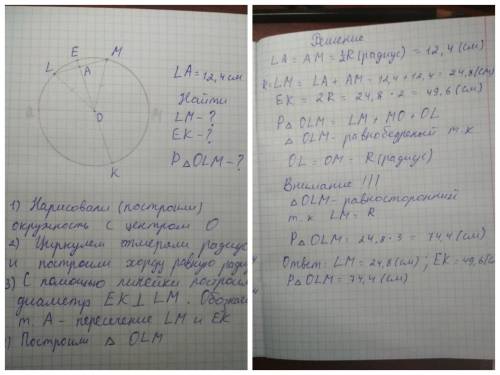 E
M
L
A
O
K
LA = 12,4 см
Найти
LM - ?
EK - ?
P△OLM - ?
1) Нарисовали (построили)
окружность с центром О
2) Циркулем отмеряли радиус
и построили хорду равную
3) С помощью линейки построи
диаметр EK ⊥ LM. Обознач
т. А - пересечение LM и EK
Построим △ OLM
Решение
LA = AM = ½R (радиус) = 12,4 (см)
R = LM = LA + AM = 12,4 + 12,4 = 24,8 (см)
EK = 2R = 24,8 · 2 = 49,6 (см)
P△OLM = LM + MO + OL
△ OLM - равнобедренный т.к
OL = OM = R (радиус)
Внимание !!!
△OLM - равносторонний
т.к LM = R
P△OLM = 24,8 · 3 = 74,4 (см)
Ответ: LM = 24,8 (см); EK = 49,6 (см
P△OLM = 74,4 (см)